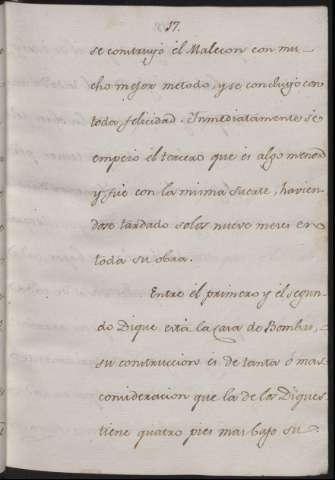 17.
se construyó el Malecon con mu-
cho mejor metodo, y se concluyó con
toda felicidad. Inmediatamente se
empezó el tercero que es algo menor
y fue con la misma suerte, havien-
dose tardado solos nueve meses en
toda su obra.
Entre el primero y el segun-
do Dique está la Casa de Bombas,
su construccion es de tanta ó mas
consideracion que la de los Diques
tiene quatro pies mas bajo su